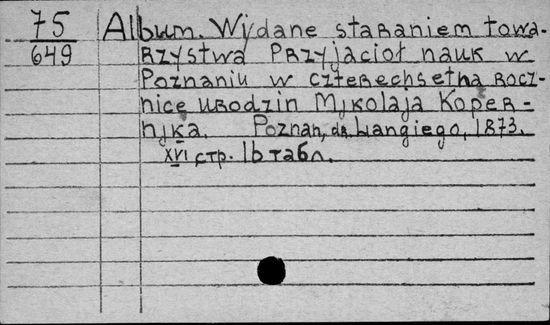 75 Album. Wydane staraniem towa-
649 rzystwa Przyjacioł nauk w
Poznaniu w czterechsetną rocz-
nicę urodzin Mikolaja Koper-
nika. Poznań, dr. Langiego, 1873.
XVI стр. 16 табл.